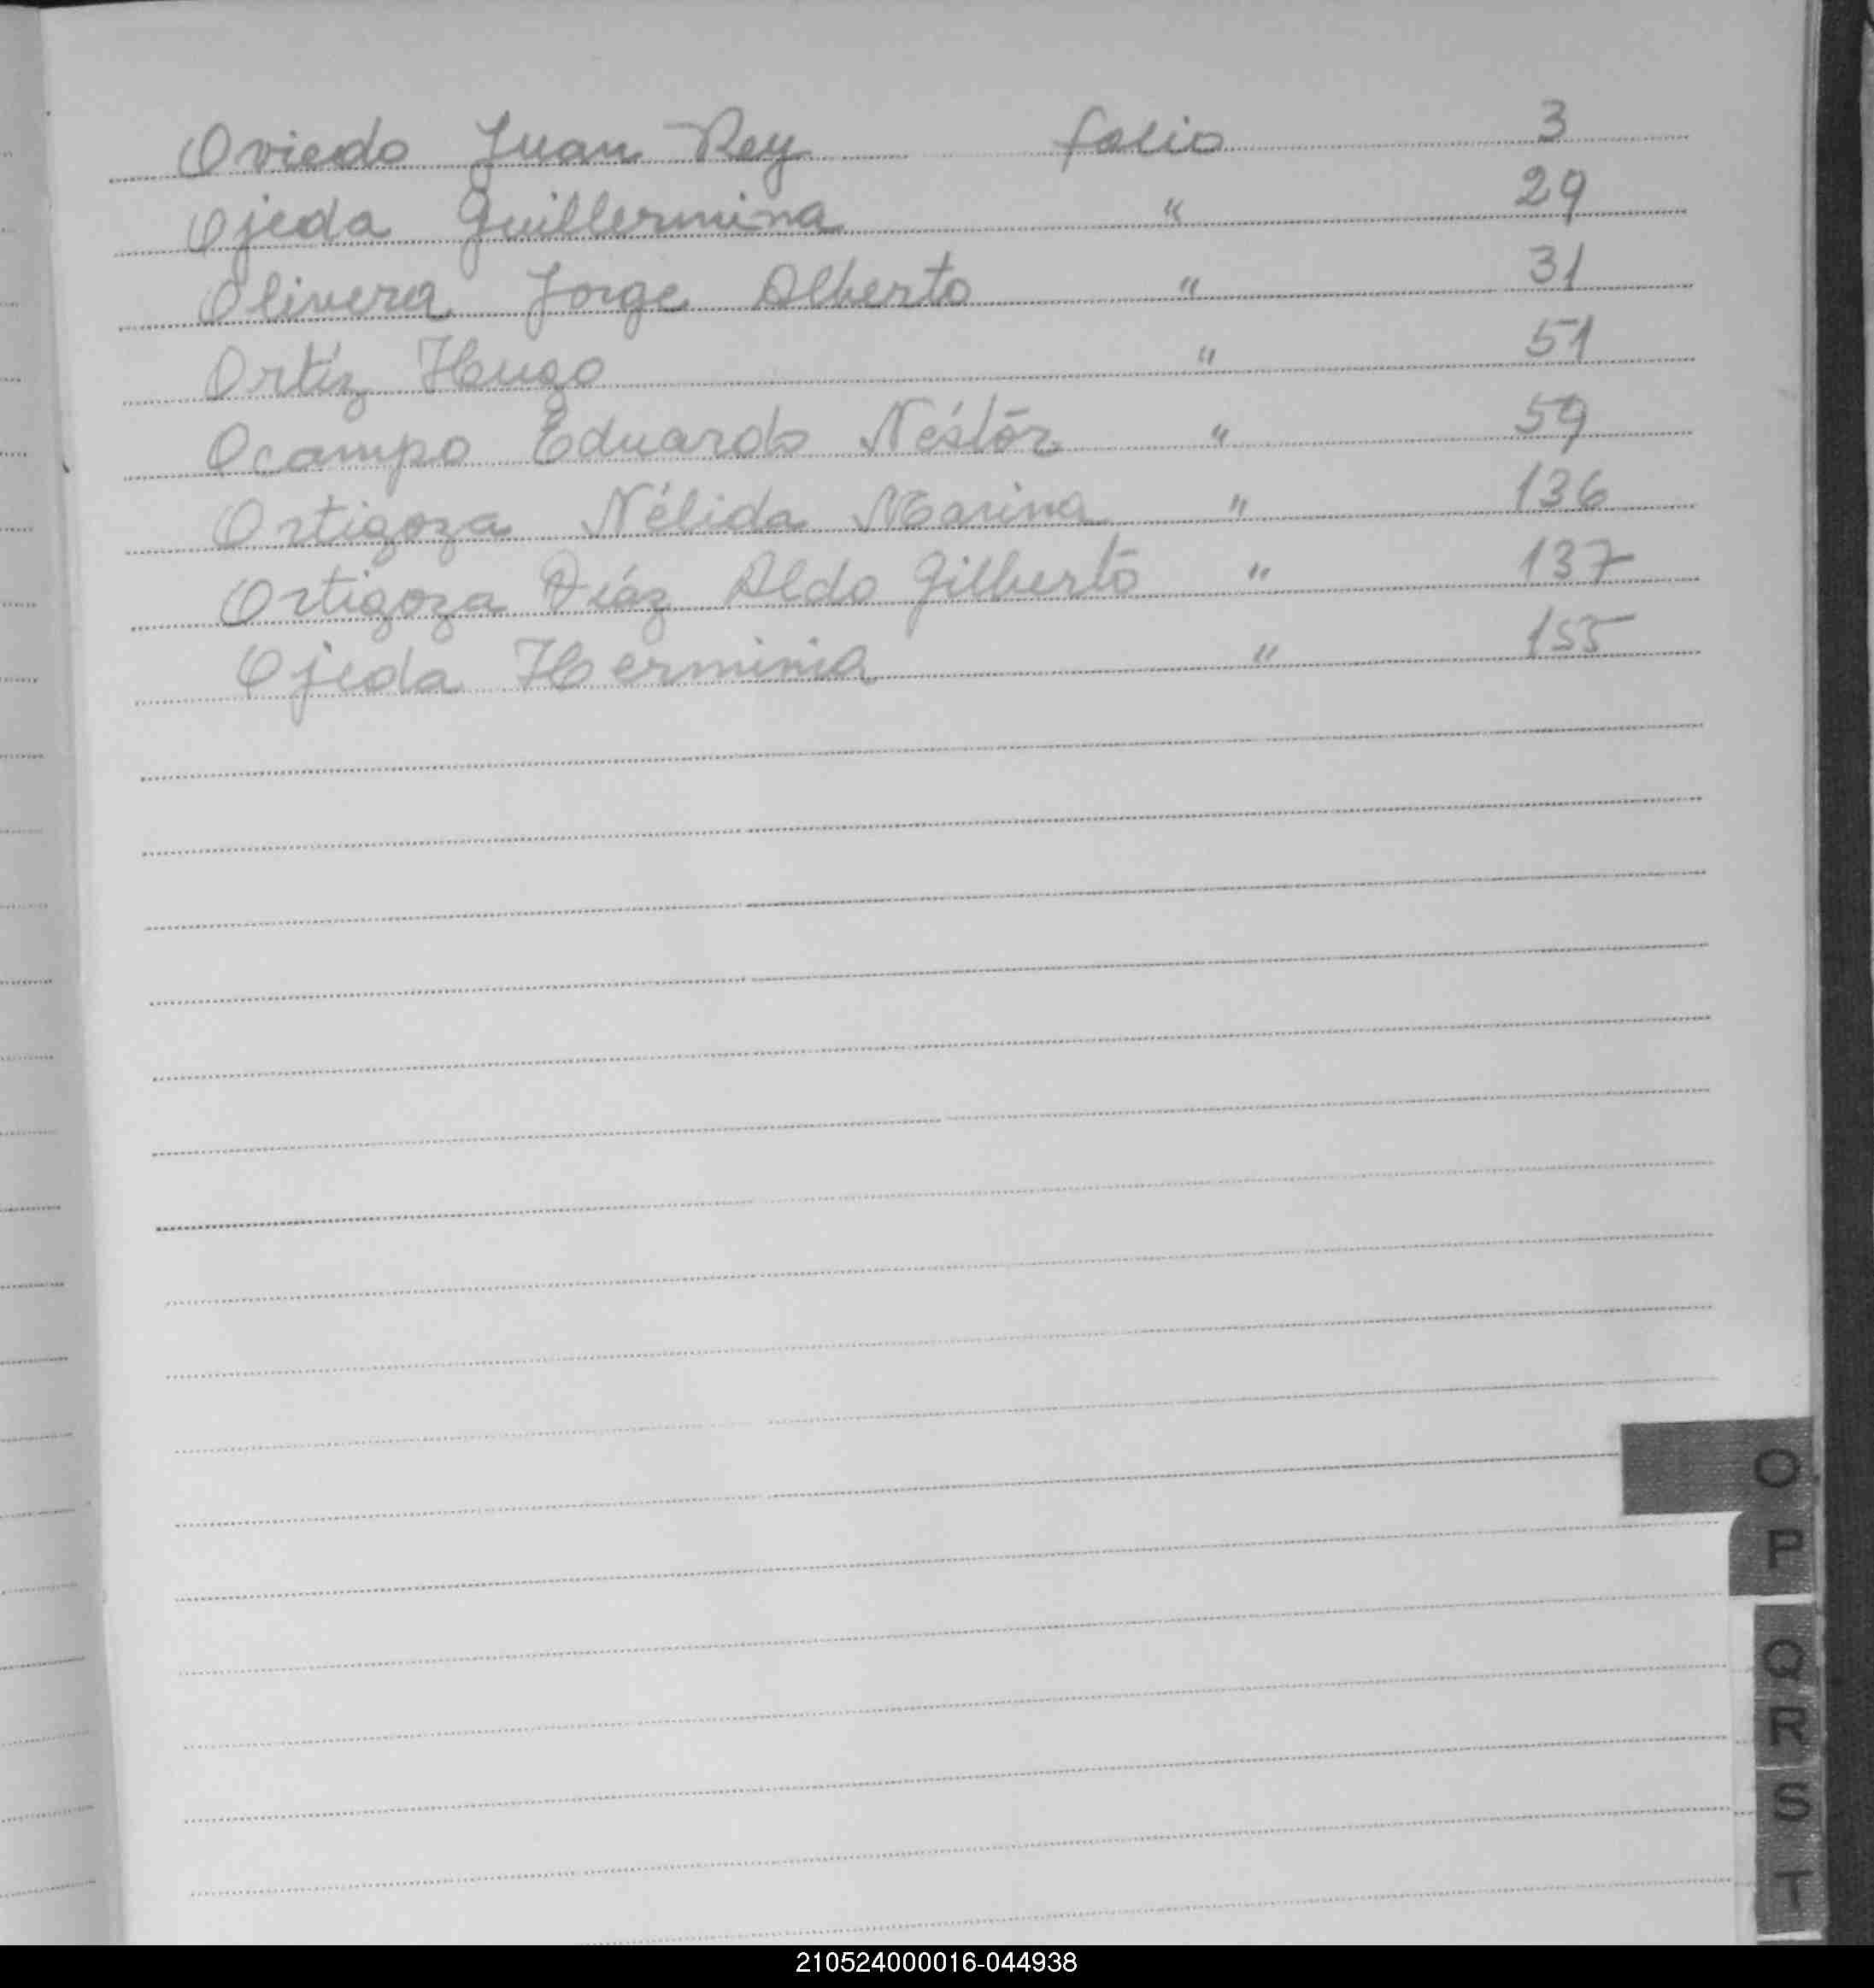 Oviedo Juan Rey folio 3
Ojeda Guillermina " 29
Olivera Jorge Alberto " 31
Ortíz Hugo " 51
Ocampo Eduardo Néstor " 59
Ortigoza Nélida Marina " 136
Ortigoza Díaz Aldo Gilberto " 137
Ojeda Herminia " 155
O
P
Q
R
S
T
210524000016-044938